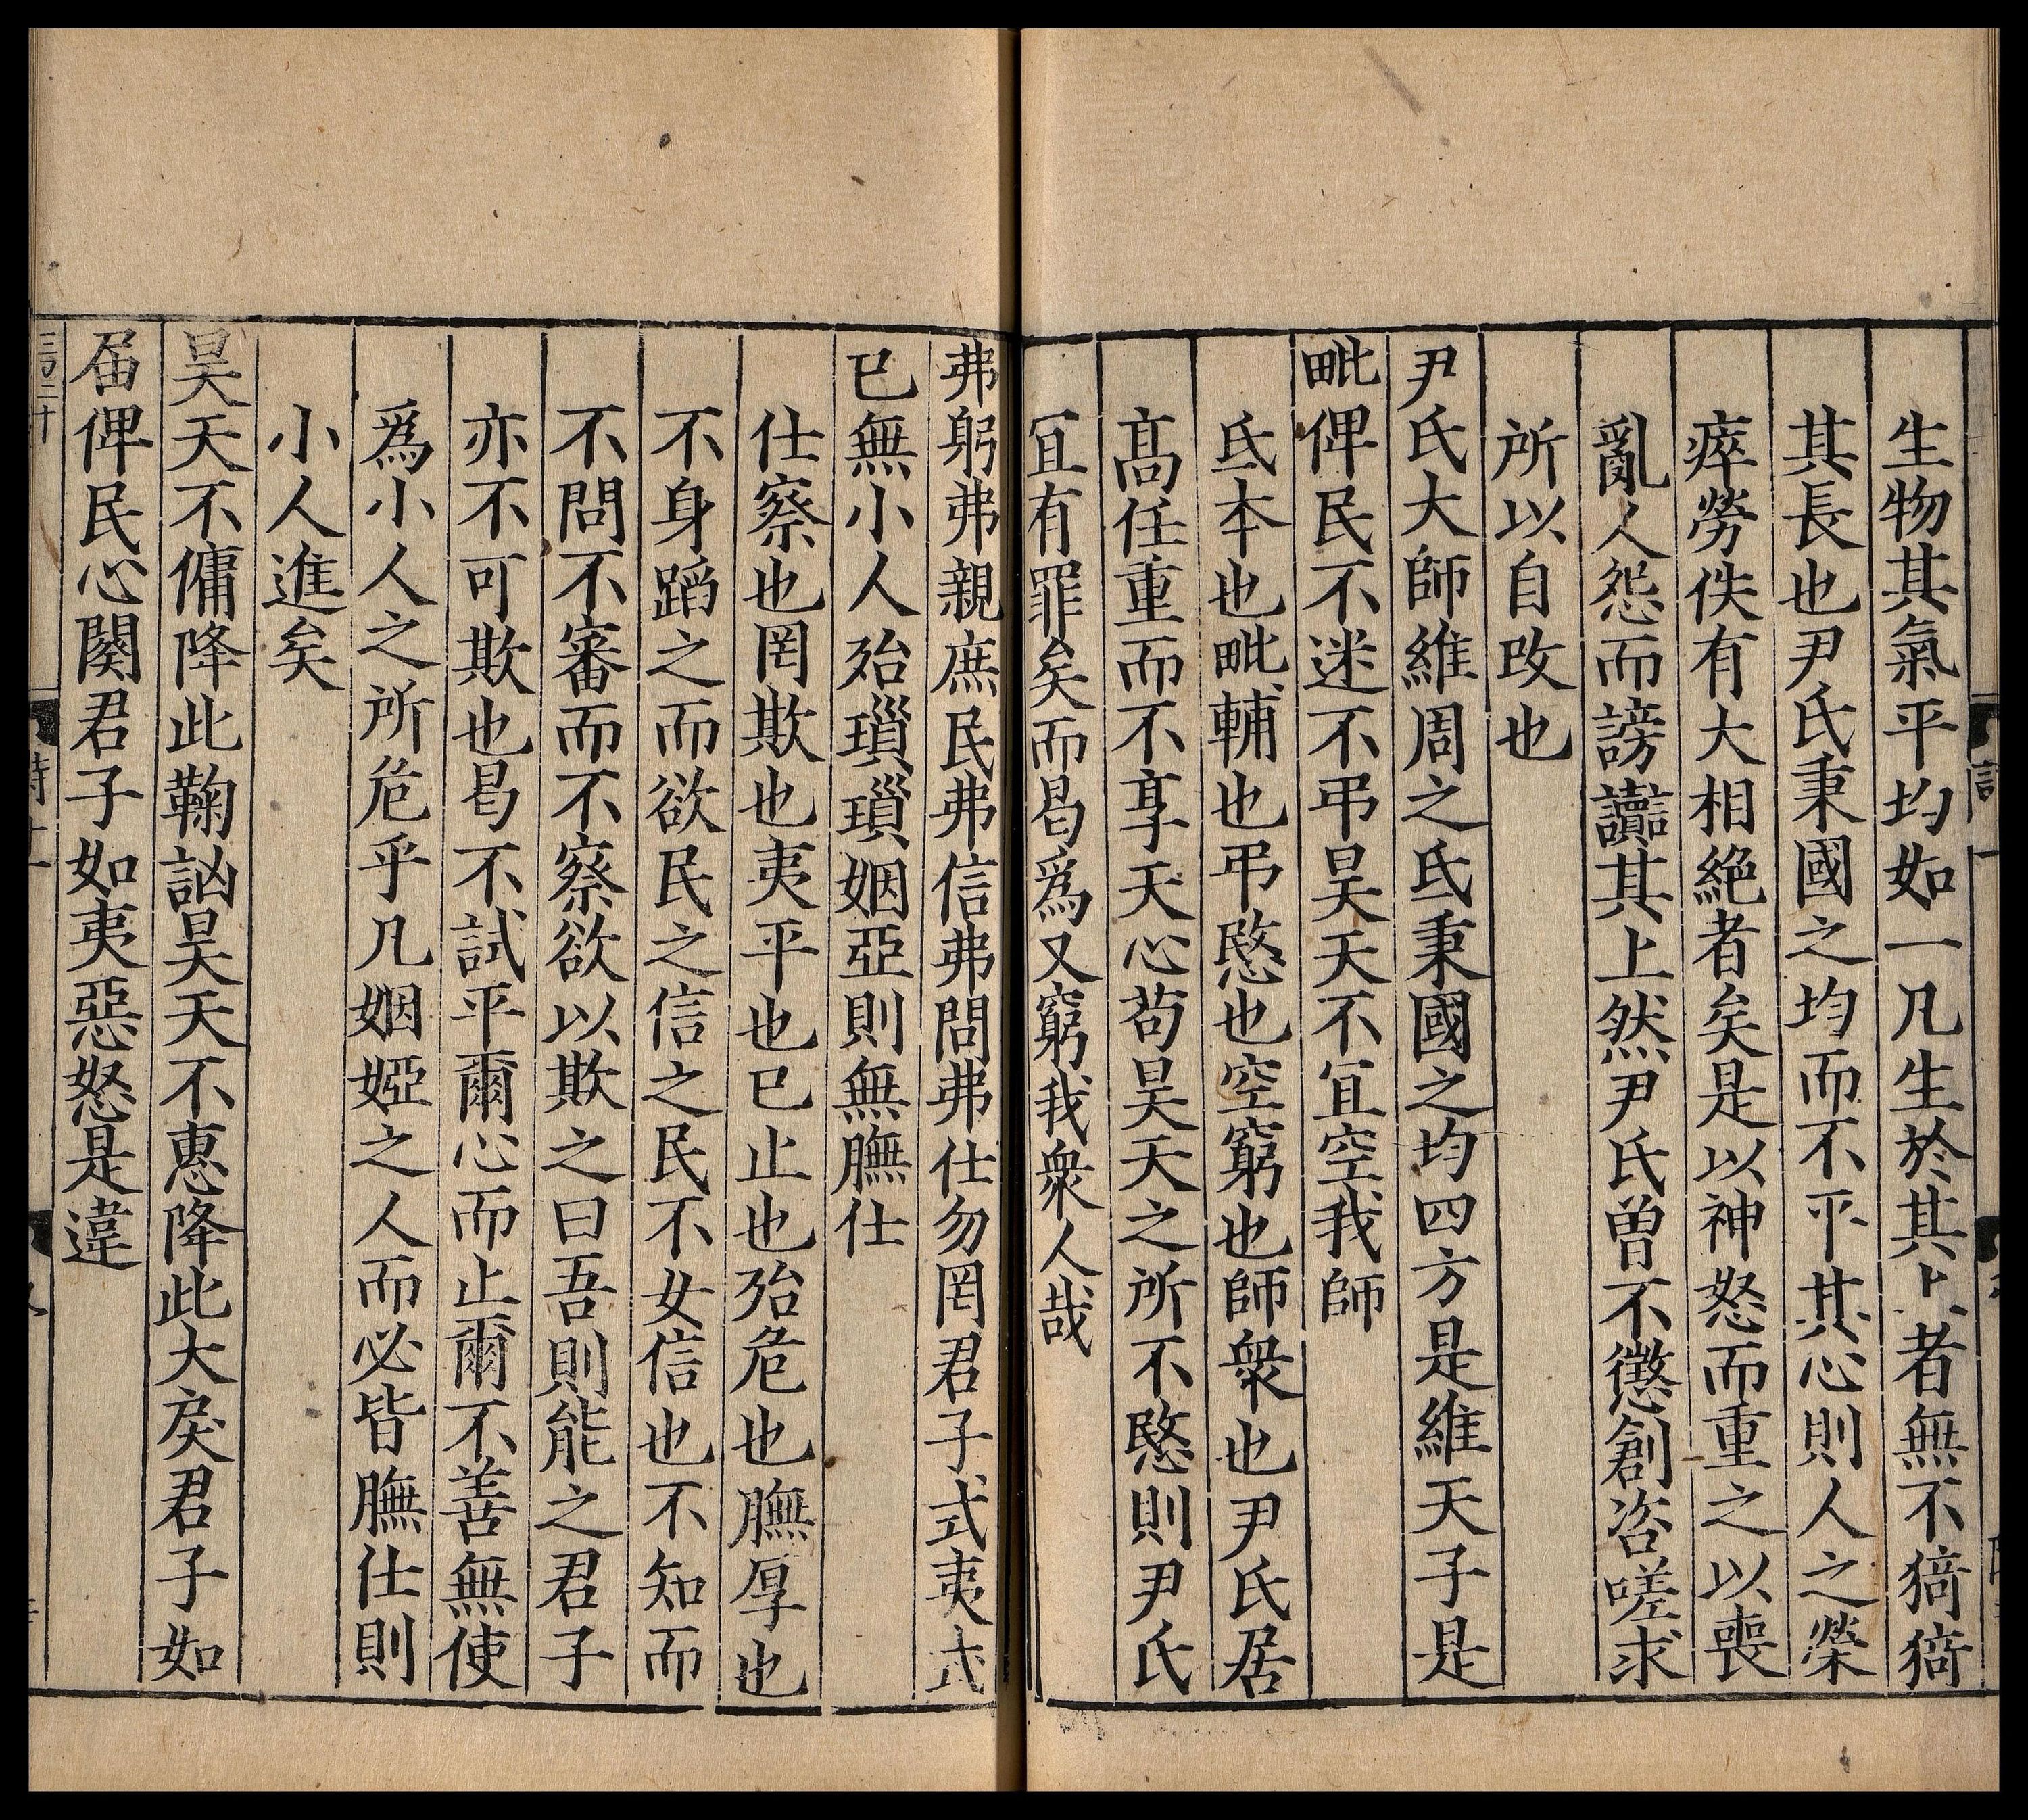 生物其氣平均如一凡生於其上者無不猗猗
其長也尹氏秉國之均而不平其心則人之榮
瘁勞佚有大相絶者矣是以神怒而重之以喪
亂人怨而謗讟其上然尹氏曾不懲創咨嗟求
所以自改也
尹氏大師維周之氐秉國之均四方是維天子是
毗俾民不迷不弔昊天不冝空我師
氐本也毗輔也弔愍也空窮也師衆也尹氏居
髙任重而不享天心苟昊天之所不愍則尹氏
冝有罪矣而曷爲又窮我衆人哉
弗躬弗親庶民弗信弗問弗仕勿罔君子式夷式
已無小人殆瑣瑣姻亞則無膴仕
仕察也罔欺也夷平也已止也殆危也膴厚也
不身蹈之而欲民之信之民不女信也不知而
不問不審而不察欲以欺之曰吾則能之君子
亦不可欺也曷不試平爾心而止爾不善無使
爲小人之所危乎凡姻婭之人而必皆膴仕則
小人進矣
昊天不傭降此鞠訩昊天不惠降此大戾君子如
届俾民心闋君子如夷惡怒是違